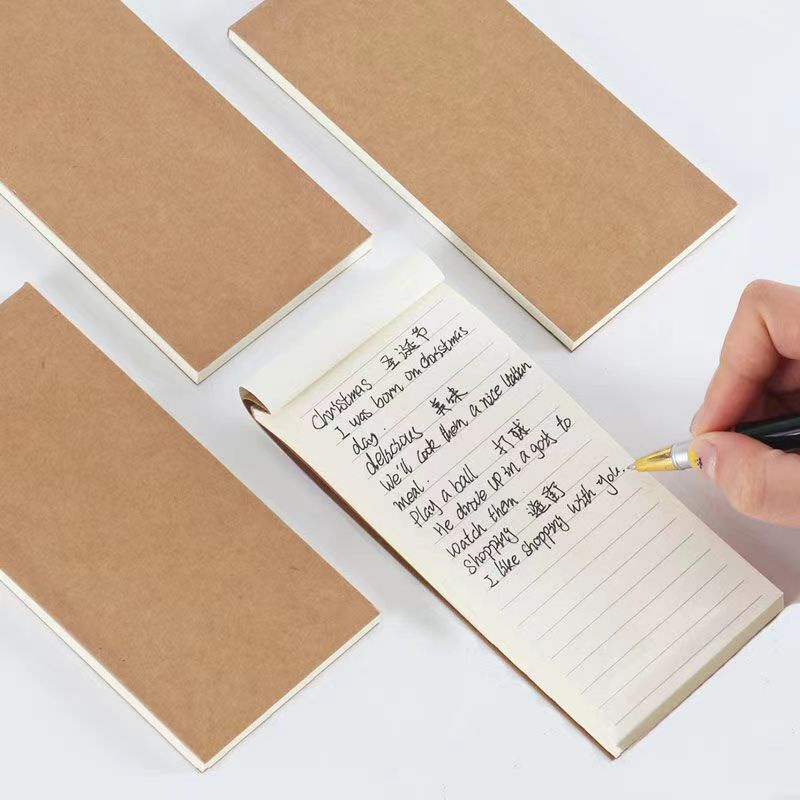 Christmas 圣诞节
I was born on christmas
day.
delicious 美味
We'll cook them a nice
meal.
Play a ball 打球
He drove up in a to
watch them.
Shopping 逛街
I like shopping with you.